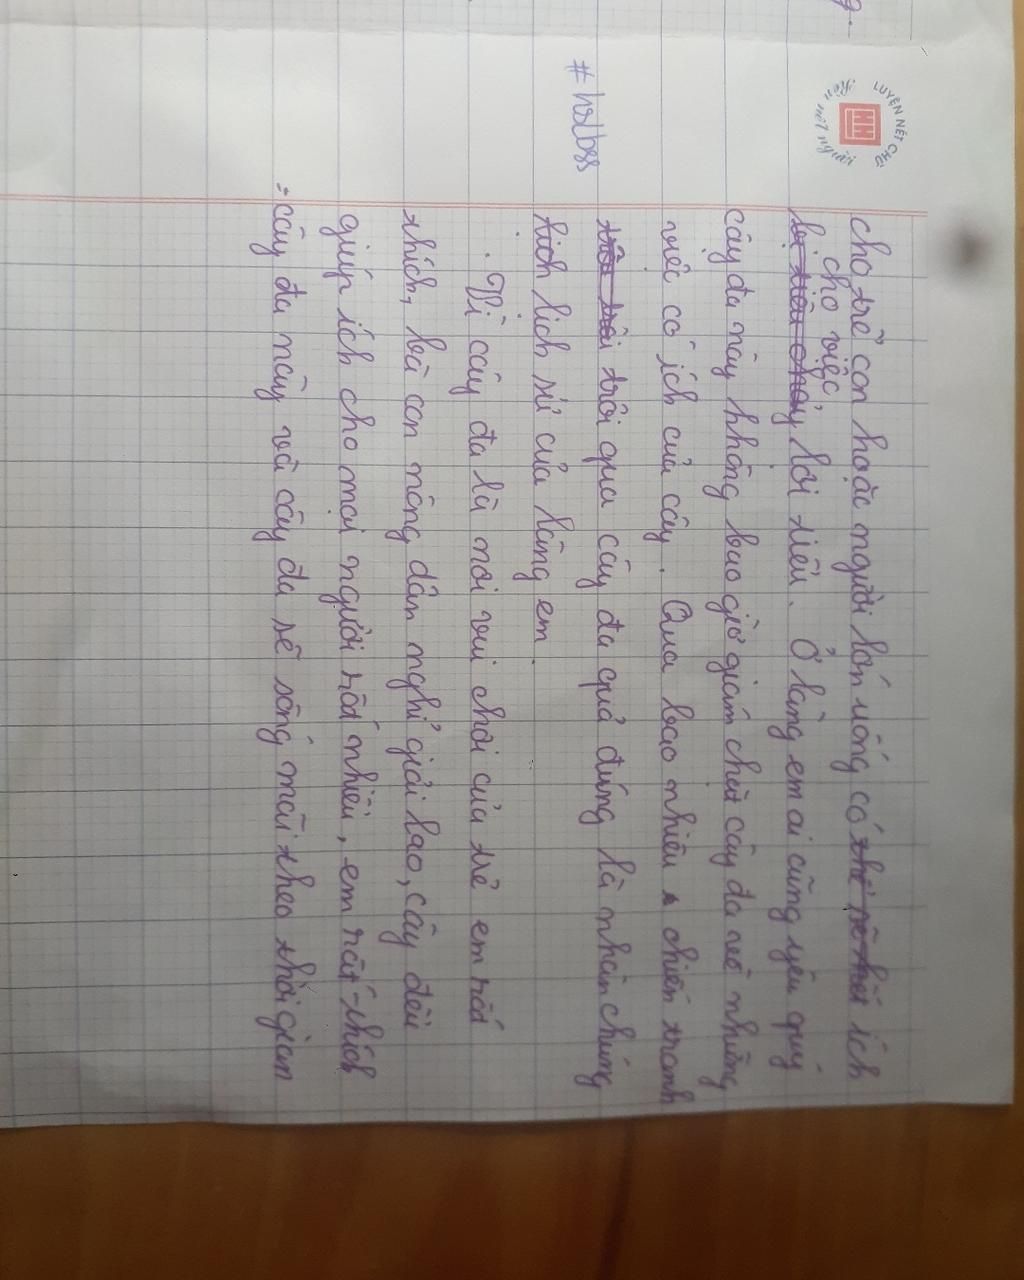 g.
LUYỆN NÉT CHỮ
Rèn nét người
HH
#hslbss
cho trẻ con hoặc người lớn uống có ích
cho việc
bài tiết. Ở làng em ai cũng yêu quý
cây đa này không bao giờ giám chặt cây đa vì những
việc có ích của cây. Qua bao nhiêu chiến tranh
trôi qua cây đa quả đúng là nhân chứng
lịch lịch sử của làng em.
Vì cây đa là nơi vui chơi của trẻ em rất
thích, bà con nông dân nghỉ giải lao, cây đều
giúp ích cho mọi người rất nhiều, em rất thích
cây đa này và cây đa sẽ sống mãi theo thời gian